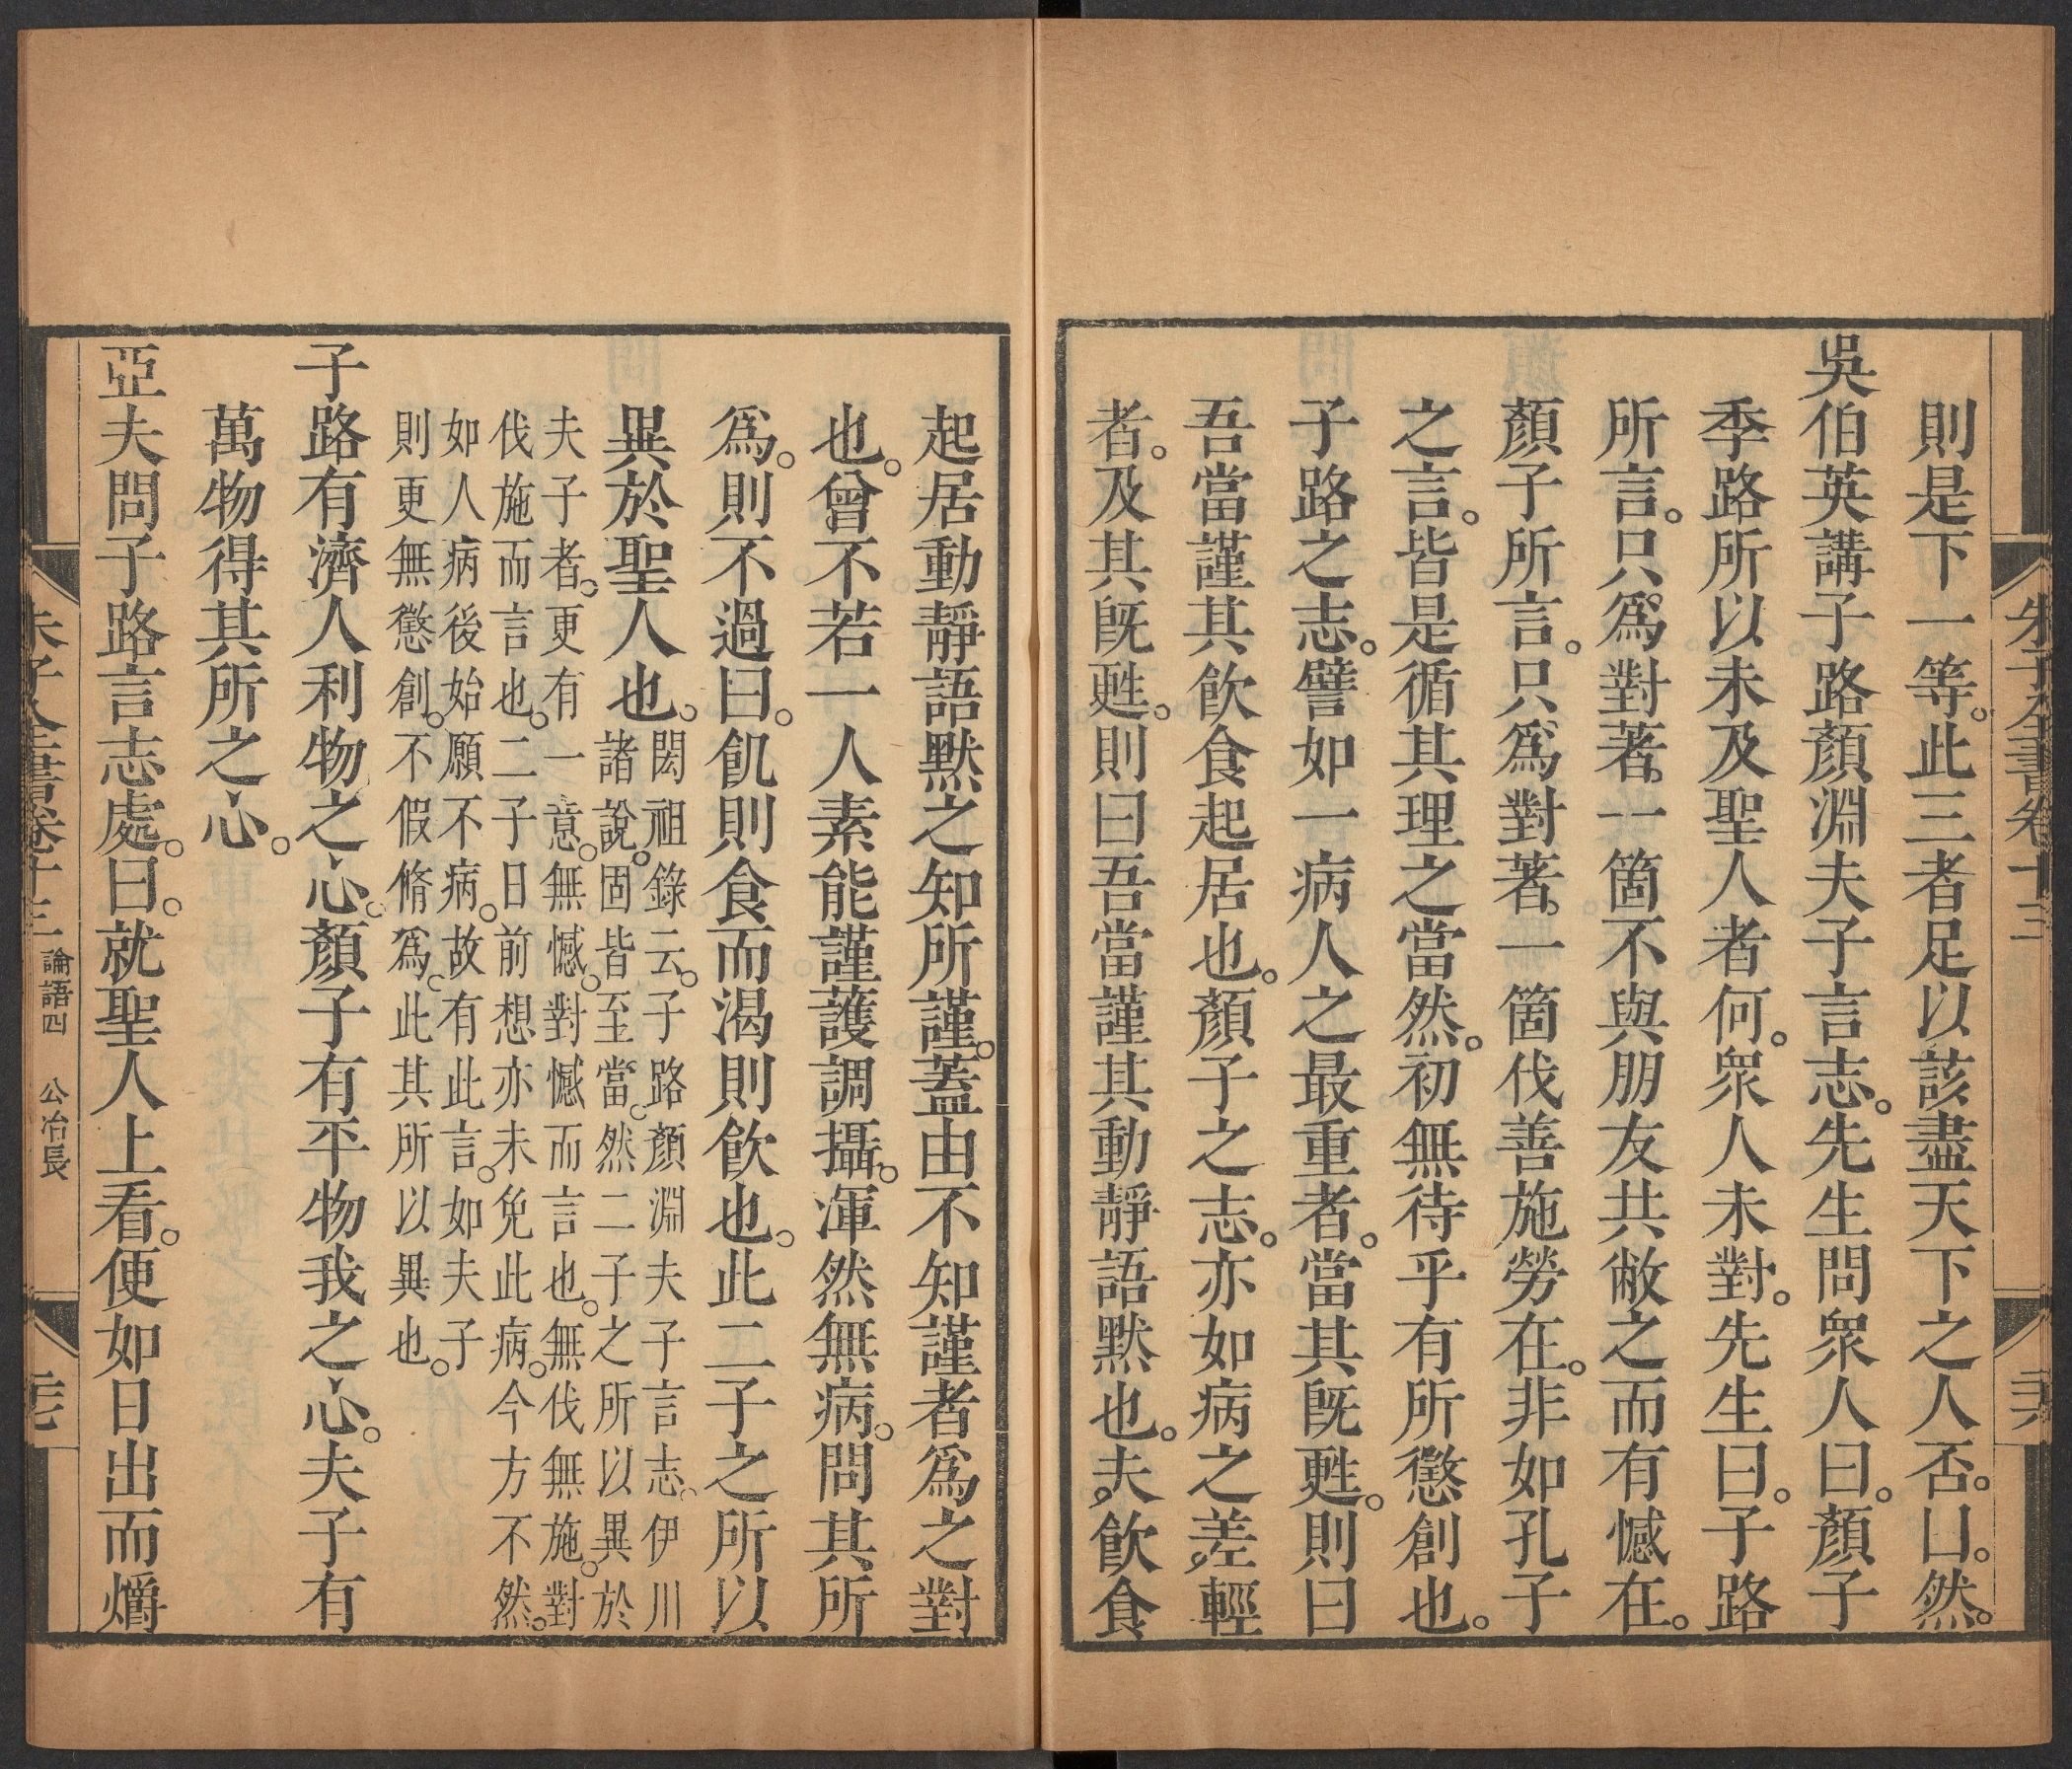 則是下一等。此三者足以該盡天下之人否。曰。然。
吳伯英講子路顏淵夫子言志。先生問衆人曰。顏子
季路所以未及聖人者何。衆人未對。先生曰。子路
所言。只爲對著一箇不與朋友共敝之而有憾在。
顏子所言。只爲對著一箇伐善施勞在。非如孔子
之言。皆是循其理之當然。初無待乎有所懲創也。
子路之志。譬如一病人之最重者。當其旣甦。則曰
吾當謹其飮食起居也。顏子之志。亦如病之差輕
者。及其旣甦。則曰吾當謹其動靜語黙也。夫飮食
朱子全書卷十三
起居動靜語黙之知所謹。蓋由不知謹者爲之對
也。曾不若一人素能謹護調攝。渾然無病。問其所
爲。則不過曰。飢則食而渴則飮也。此二子之所以
異於聖人也。
閎祖錄云。子路顏淵夫子言志。伊川
諸說。固皆至當。然二子之所以異於
夫子者。更有一意。無憾。對憾而言也。無伐無施。對
伐施而言也。二子日前想亦未免此病。今方不然。
如人病後始願不病。故有此言。如夫子
則更無懲創。不假脩爲。此其所以異也。
子路有濟人利物之心。顏子有平物我之心。夫子有
萬物得其所之心。
亞夫問子路言志處。曰。就聖人上看。便如日出而爝
朱子全書卷十三 論語四 公冶長